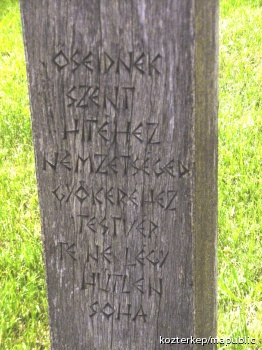 ŐSEIDNEK
SZENT
HITÉHEZ
NEMZETSÉGED
GYÖKERÉHEZ
TESTVÉR
TE NE LÉGY
HŰTLEN
SOHA
kozterkep/mapublic